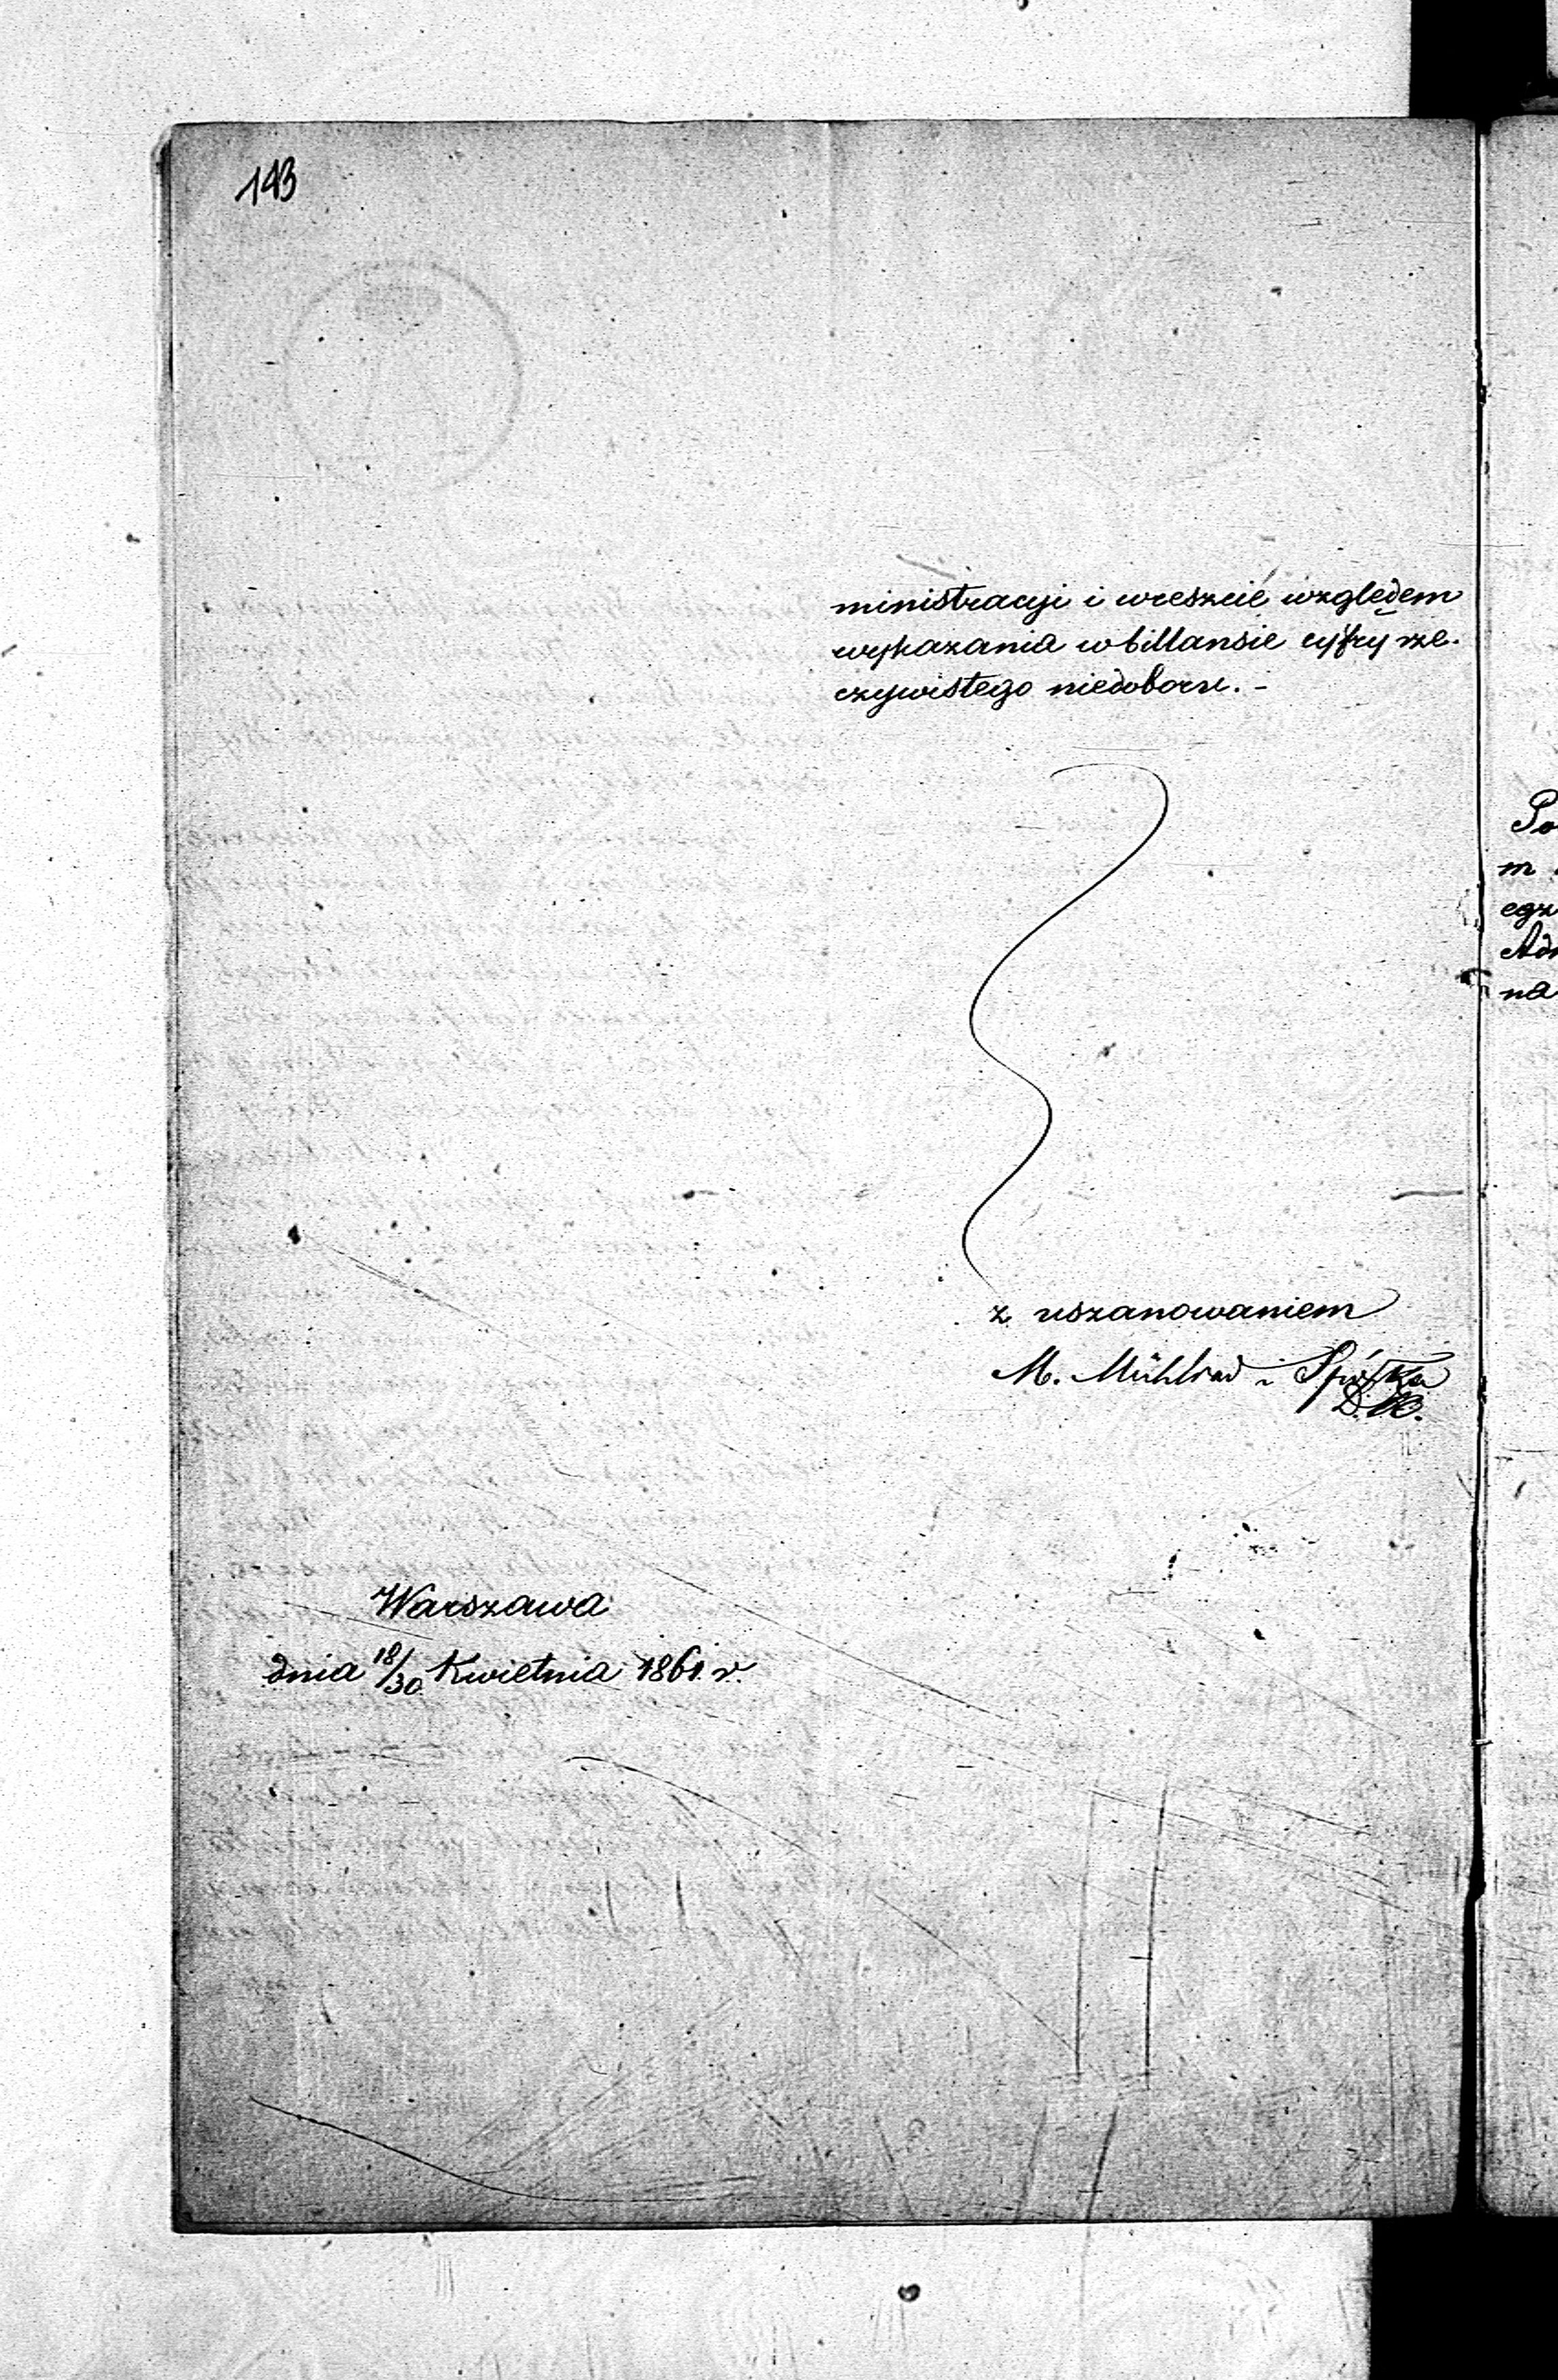 143
ministracyi i wreszcie względem
wykazania w billansie cyfry rze-
czywistego niedoboru. -
z uszanowaniem
M. Mühlrad i Spółka
Warszawa
dnia 18/30 Kwietnia 1861 r.
Po
m
egz
Adm
na